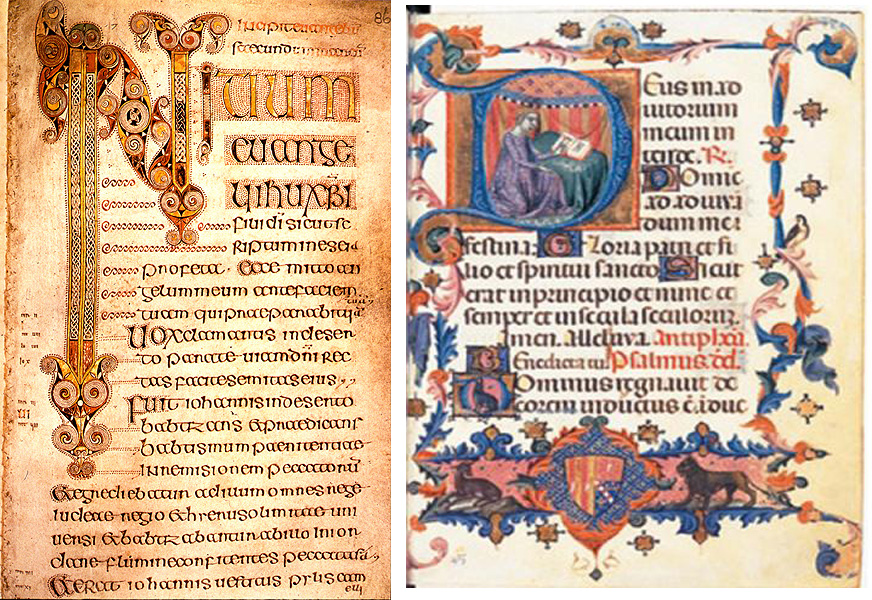 86
Incipit euangelium
secundum
INITIUM
euange
lii ihu xpi
fili di sicut sc
riptum in eseia
profeta · Ecce mitto an
gelum meum ante faciem
tuam qui praeparabit uiā tuā
Uox clamantis in deser
to parate uiam dn̄i rec
tas facite semitas eius,,
fuit iohannis in deserto
babtizans & praedicans
babtismum paenitentiae
in remisionem peccatorū
& egrediebatur ad illum omnes
iudeae regio & hierusolimitae uni
uersi & babtizabantur ab illo in ior
dane flumine confitentes peccata sua,
& erat iohannis uestitus pilis cam
eli
Deus in ad
iutorium
meum in
tende. R.
Domine
ad adiuuā
dum me
festina. Gloria patri et fi
lio et spiritui sancto Sicut
erat in principio et nunc et
semper et in secula seculorum.
Amen. Alleluya. Antiphona.
Benedicta tu. Psalmus dd.
Dominus regnauit de
corem indutus ē. iduc